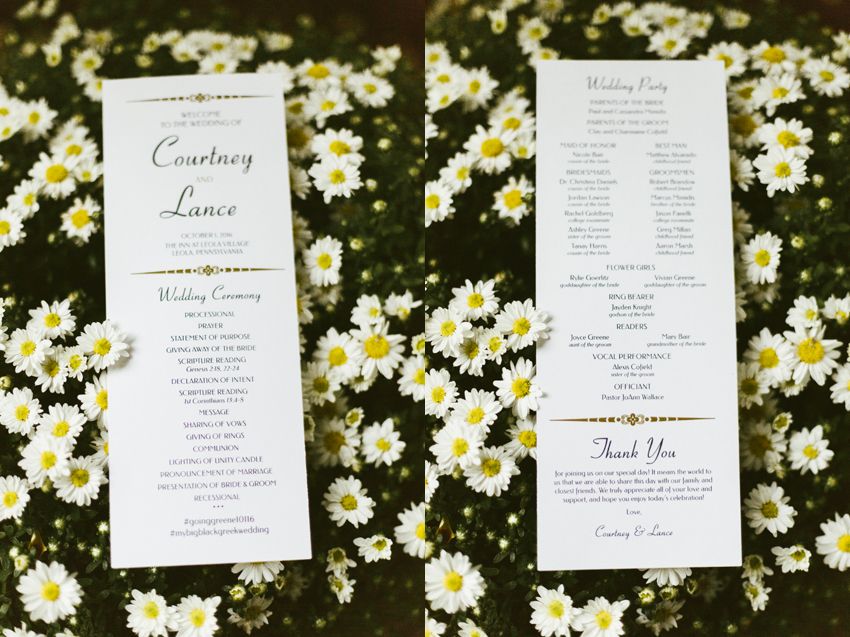 WELCOME
TO THE WEDDING OF
Courtney
AND
Lance
OCTOBER 1, 2016
THE INN AT LEOLA VILLAGE
LEOLA, PENNSYLVANIA
Wedding Ceremony
PROCESSIONAL
PRAYER
STATEMENT OF PURPOSE
GIVING AWAY OF THE BRIDE
SCRIPTURE READING
Genesis 2:18, 22-24
DECLARATION OF INTENT
SCRIPTURE READING
1st Corinthians 13:4-8
MESSAGE
SHARING OF VOWS
GIVING OF RINGS
COMMUNION
LIGHTING OF UNITY CANDLE
PRONOUNCEMENT OF MARRIAGE
PRESENTATION OF BRIDE & GROOM
RECESSIONAL
• • •
#goinggreene10116
#mybigblackgreekwedding
Wedding Party
PARENTS OF THE BRIDE
Paul and Cassandra
PARENTS OF THE GROOM
Clinc and Charmaine Cofield
MAID OF HONOR BEST MAN
Nicole Bair Matthew Alvarado
cousin of the bride childhood friend
BRIDESMAIDS GROOMSMEN
Dr. Christina Daniels Robert Brandow
cousin of the bride childhood friend
Jordan Lawson Marcus
cousin of the bride brother of the bride
Rachel Goldberg Jason Fanelli
college roommate college roommate
Ashley Greene Greg Millan
sister of the groom childhood friend
Tanay Harris Aaron Marsh
cousin of the bride childhood friend
FLOWER GIRLS
Rylie Goerlitz Vivian Greene
goddaughter of the bride goddaughter of the groom
RING BEARER
Jayden Knight
godson of the bride
READERS
Joyce Greene Mary Bair
aunt of the groom grandmother of the bride
VOCAL PERFORMANCE
Alexis Cofield
sister of the groom
OFFICIANT
Pastor JoAnn Wallace
Thank You
for joining us on our special day! It means the world to
us that we are able to share this day with our family and
closest friends. We truly appreciate all of your love and
support, and hope you enjoy today's celebration!
Love,
Courtney & Lance